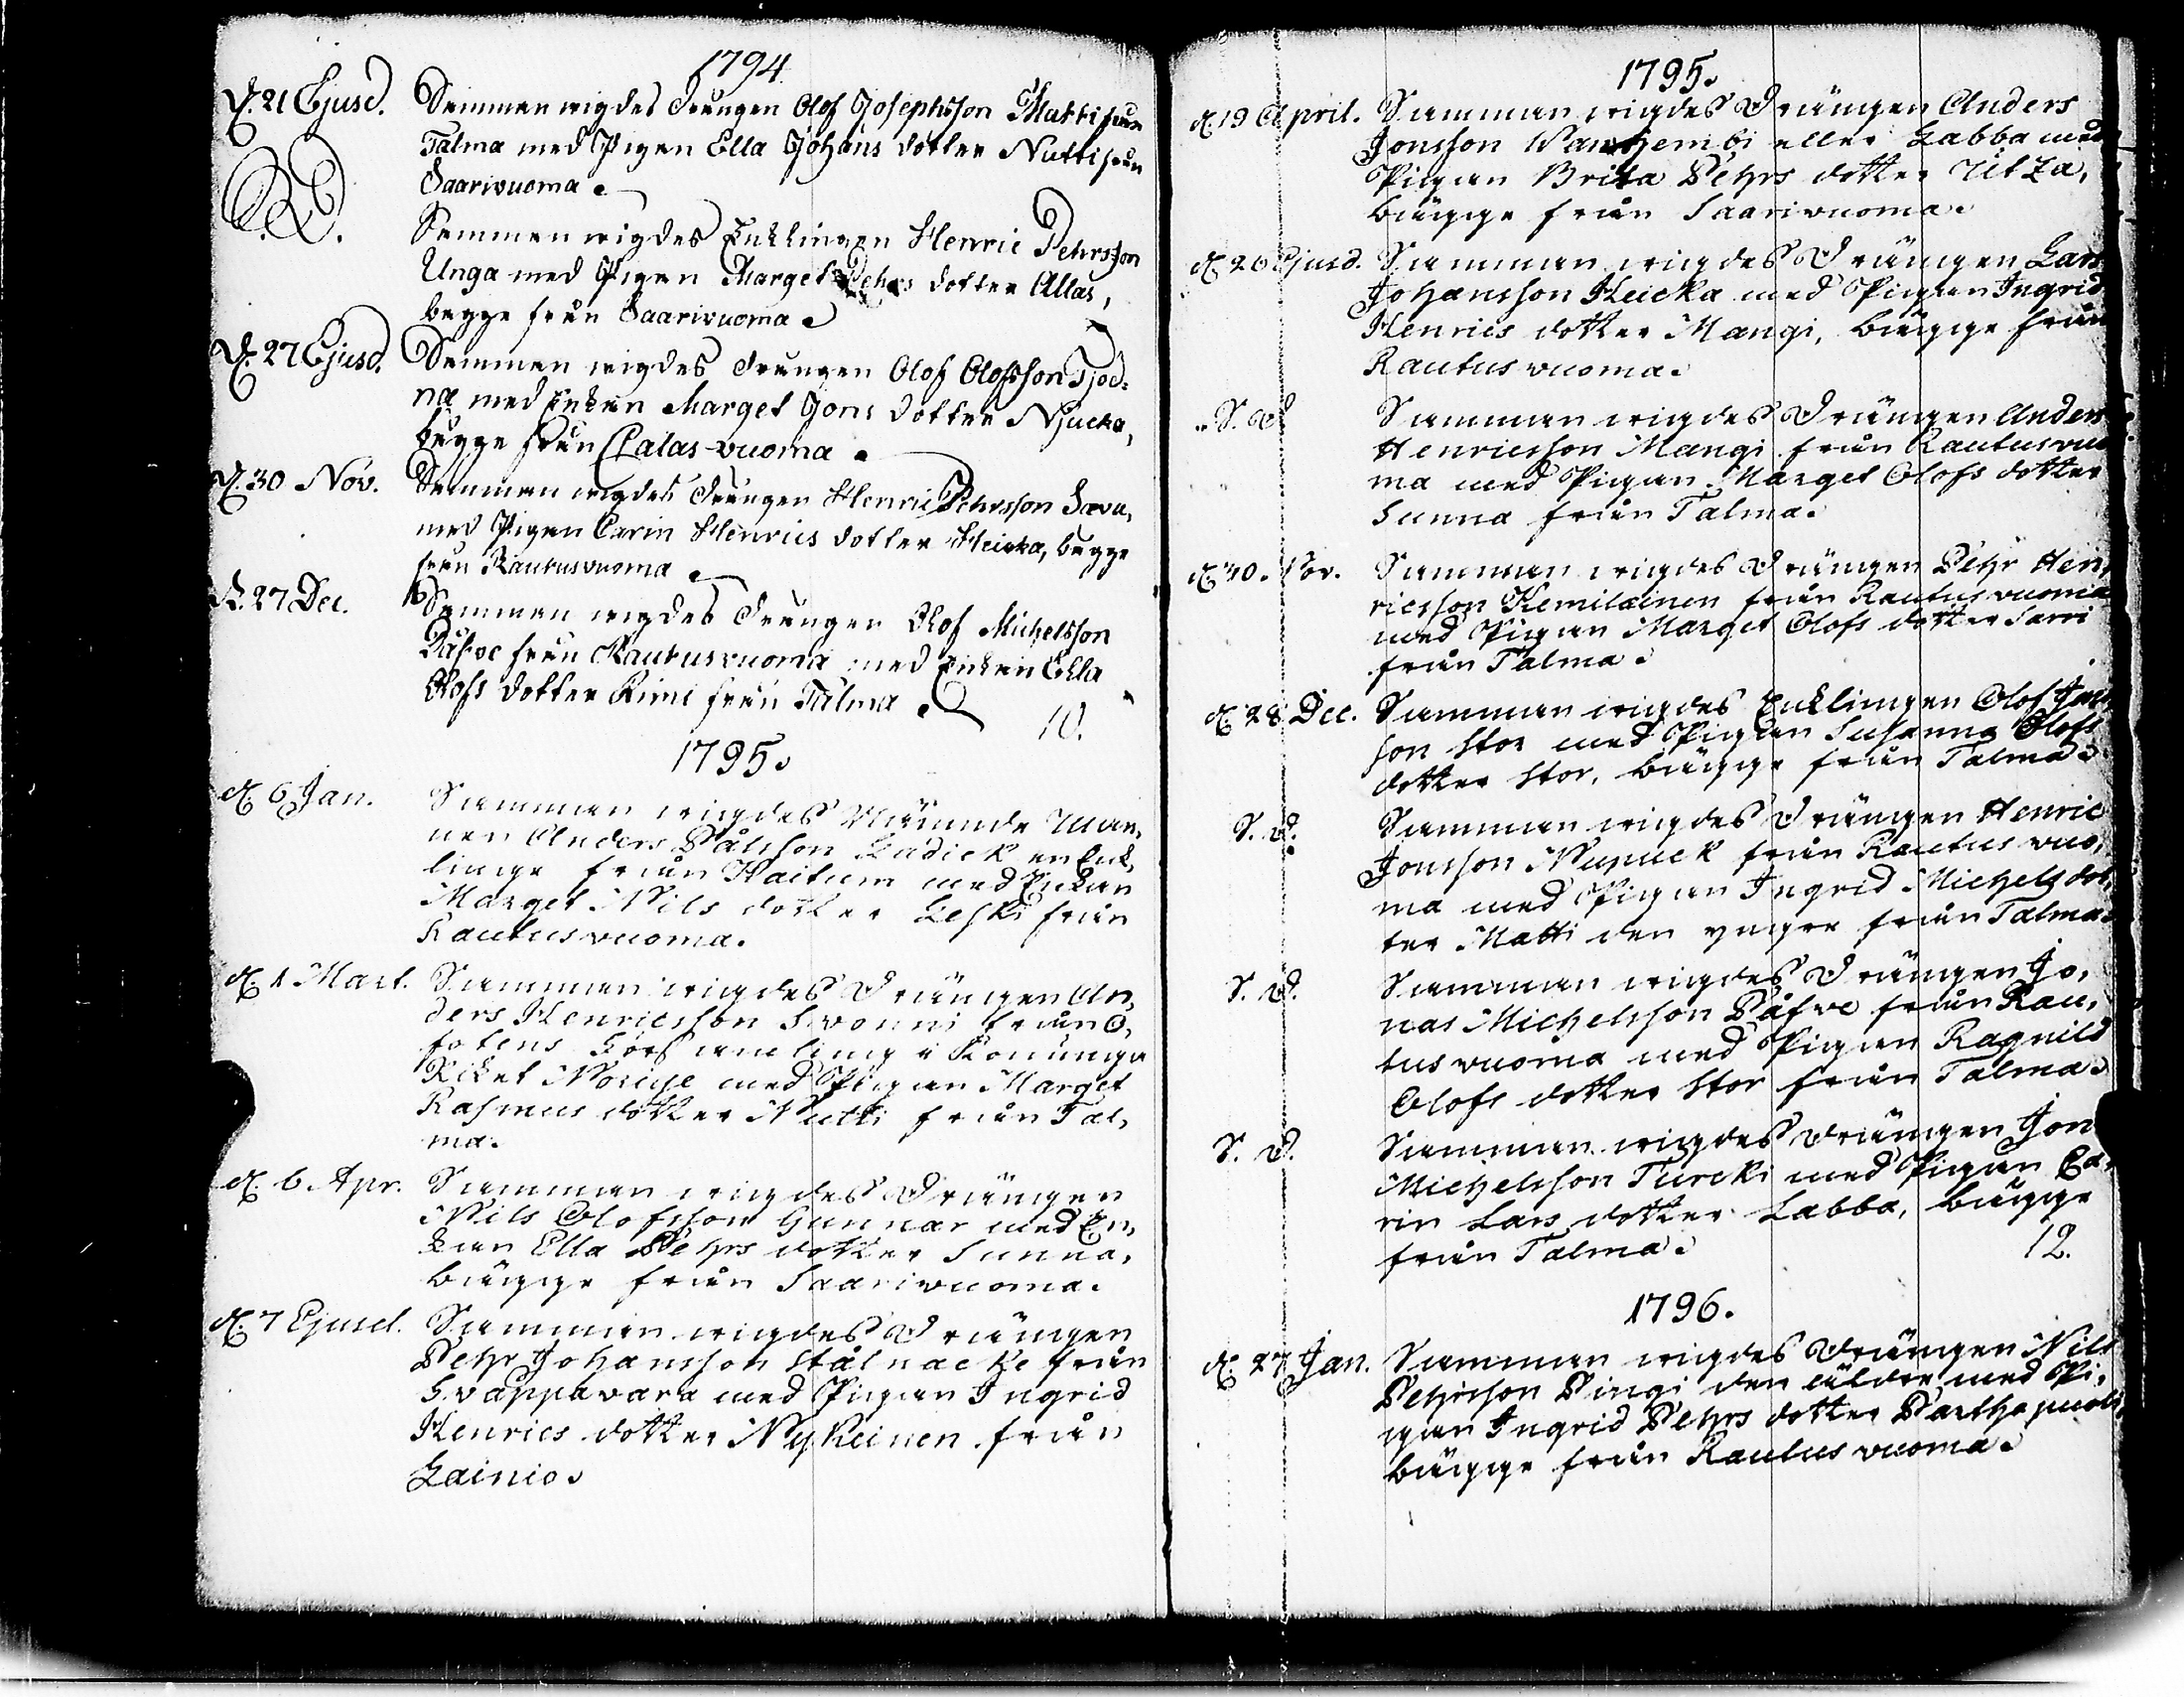 1794.
D. 21 Ejusd. Samman wigdes Drängen Olof Josephsson Matti från
Talma med Pigan Ella Johans dotter Nutti från
Saariwuoma.
Samman wigdes Enklingen Henric Pehrsson
Unga med Pigan Marget Pehrs dotter Allas,
bägge från Saariwuoma.
D. 27 Ejusd. Samman wigdes Drängen Olof Olofsson Tjod-
na med Enkan Marget Jons dotter Njucka,
bägge från Calas-wuoma.
D. 30 Nov. Samman wigdes Drängen Henric Pehrsson Sava,
med Pigan Carin Henrics dotter Heicka, bägge
från Rautusvuoma.
D. 27 Dec. Samman wigdes Drängen Olof Michelsson
Påfve från Rautusvuoma med Enkan Ella
Olofs dotter Rimi från Talma.
10.
1795.
D. 6 Jan. Samman wigdes Nämnde Man-
nen Anders Pålsson Ladick en Enk-
linge från Kaitum med Enkan
Marget Nils dotter Leski från
Rautusvuoma.
D. 1 Mart. Samman wigdes Drängen An-
ders Henricsson Svonni från O-
fotens Församling i Konunga
Riket Norige med Pigan Marget
Rasmus dotter Nutti från Tal-
ma.
D. 6 Apr. Samman wigdes Drängen
Nils Olofsson Gunnar med En-
kan Ella Pehrs dotter Sunna,
bägge från Saariwuoma.
D. 7 Ejusd. Samman wigdes Drängen
Pehr Johansson Stålnacke från
Svappavara med Pigan Ingrid
Henrics dotter Nykeinen från
Lainio.
1795.
D. 19 April. Samman wigdes Drängen Anders
Jonsson Wanhembi eller Labba med
Pigan Brita Pehrs dotter Utza,
bägge från Saarivuoma.
D. 26 Ejusd. Samman wigdes Drängen Lars
Johansson Heicka med Pigan Ingrid
Henrics dotter Mangi, bägge från
Rautusvuoma.
S. D. Samman wigdes Drängen Anders
Henricsson Mangi från Rautusvuo
ma med Pigan Marget Olofs dotter
Sunna från Talma.
D. 30. Nov. Samman wigdes Drängen Pehr Hen-
ricsson Kemiläinen från Rautusvuoma
med Pigan Marget Olofs dotter Sarri
från Talma.
D. 28 Dec. Samman wigdes Enklingen Olof Jons-
son Stor med Pigan Susanna Olofs
dotter Stor, bägge från Talma.
S. D. Samman wigdes Drängen Henric
Jonsson Nupuck från Rautus vuo-
ma med Pigan Ingrid Michels dot-
ter Matti den yngre från Talma.
S. D. Samman wigdes Drängen Jo-
nas Michelsson Påfve från Rau-
tus vuoma med Pigan Ragnild
Olofs dotter Stor från Talma.
S. D. Samman wigdes Drängen Jon
Michelsson Turcki med Pigan Ca-
rin Lars dotter Labba, bägge
från Talma. 12.
1796.
D. 27 Jan. Samman wigdes Drängen Nils
Pehrsson Pingi den äldre med Pi-
gan Ingrid Pehrs dotter Parthapuoli,
bägge från Rautus vuoma.